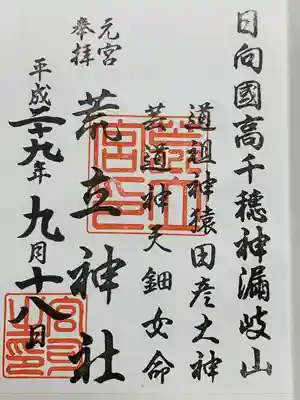 日向國高千穂神漏岐山
道祖神猿田彦大神
芸道神天鈿女命
荒立神社
元宮
奉拝
平成二十九年九月十八日